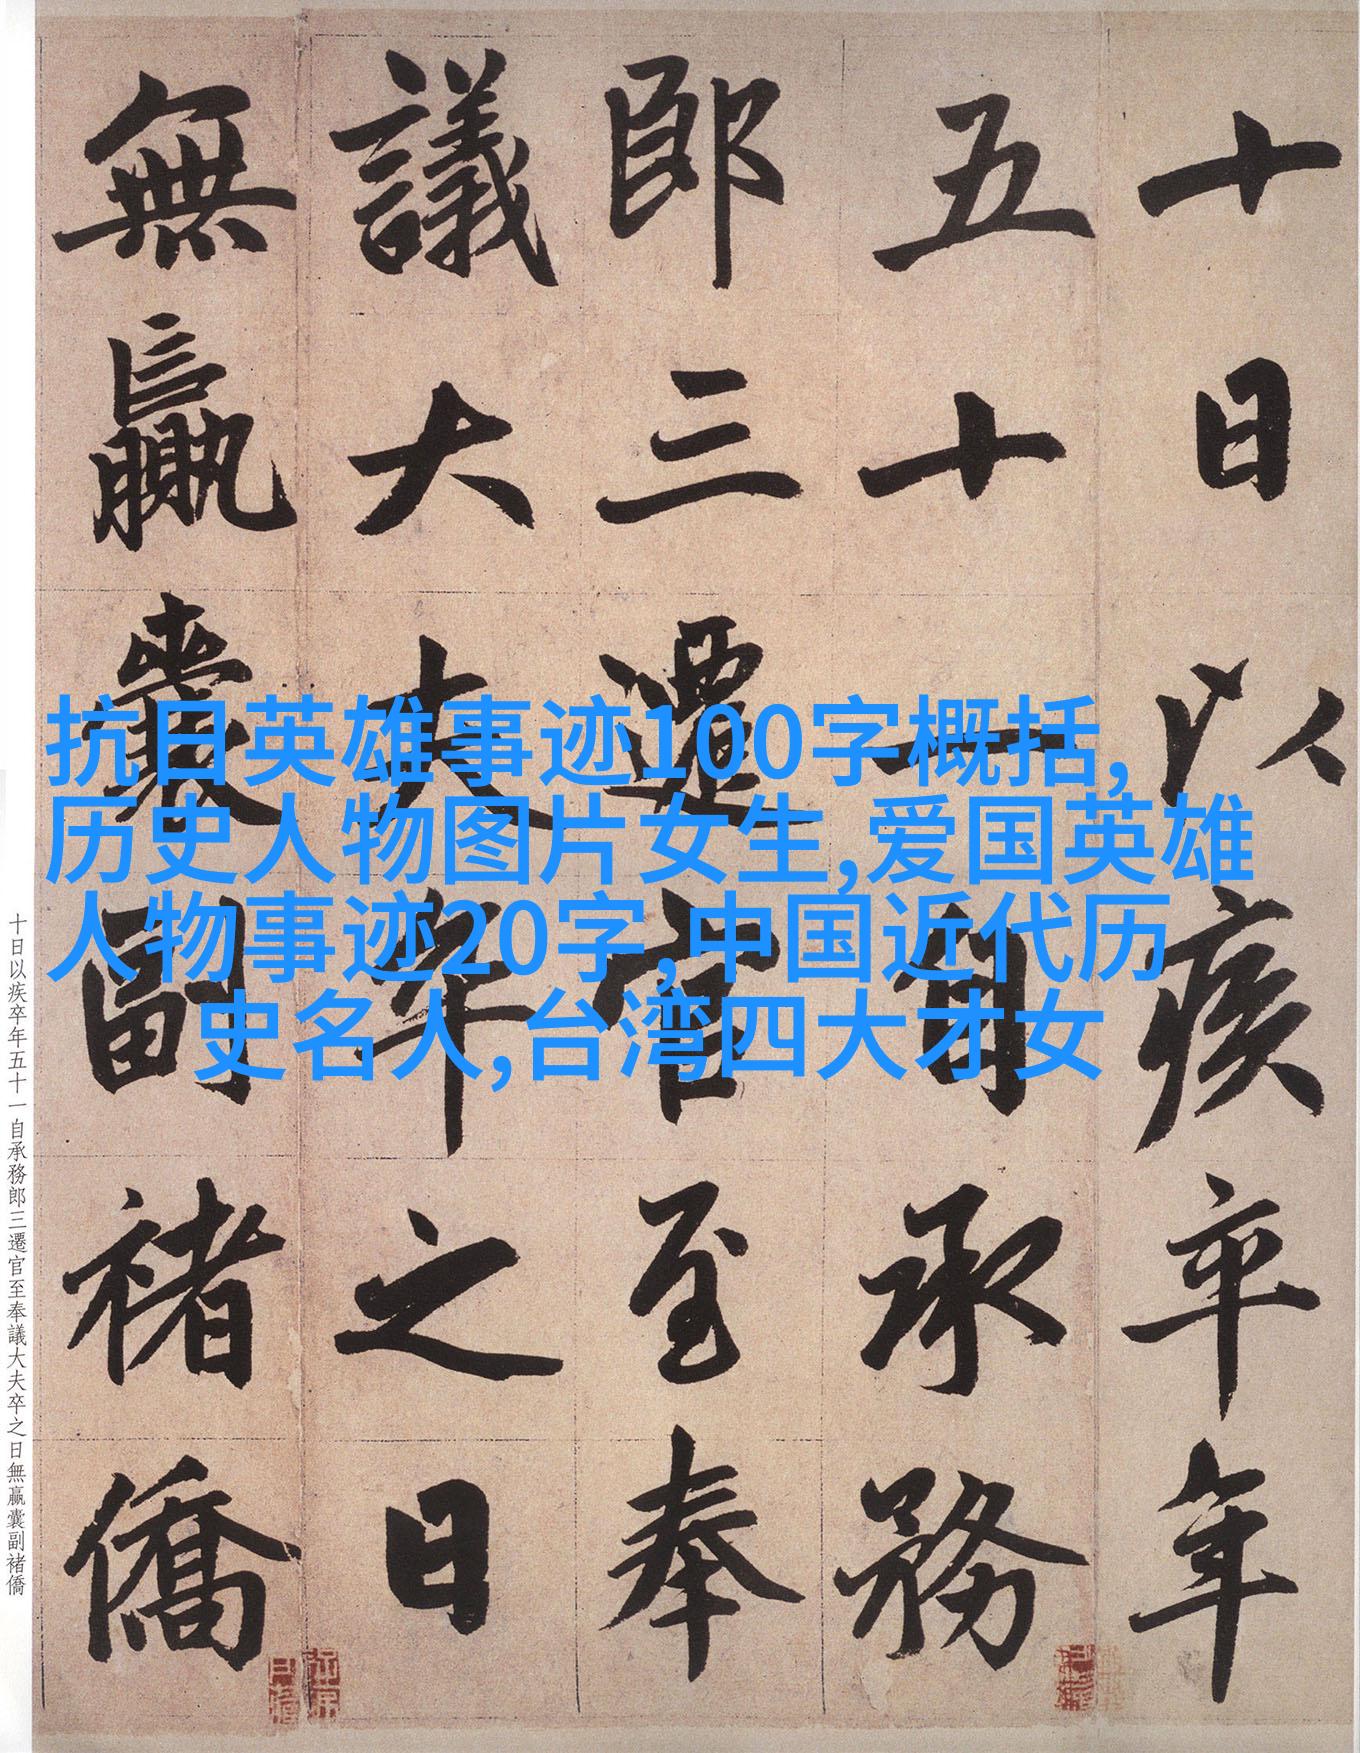 十日以疾卒年
五十一自承務
郎三遷官至奉
議大夫卒之日
無贏囊副褚僑
抗日英雄事迹100字概括,
历史人物图片女生,爱国英雄
人物事迹20字,中国近代历
史名人,台湾四大才女
十日以疾卒年五十一自承務郎三遷官至奉議大夫卒之日無贏囊副褚僑